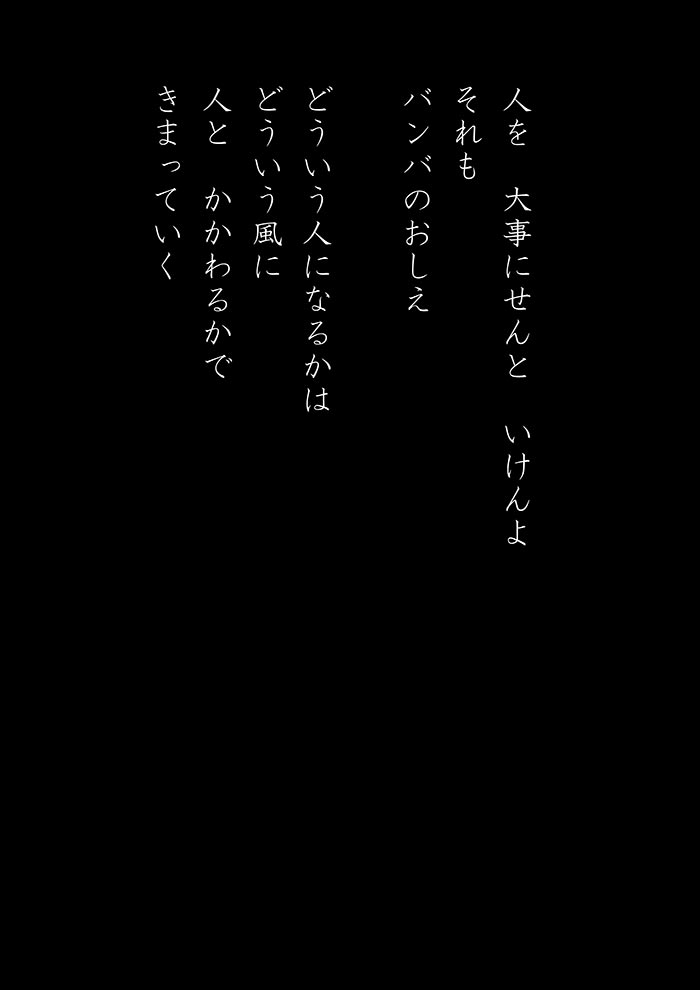 人を　大事にせんと　いけんよ
それも
バンバのおしえ
どういう人になるかは
どういう風に
人と　かかわるかで
きまっていく